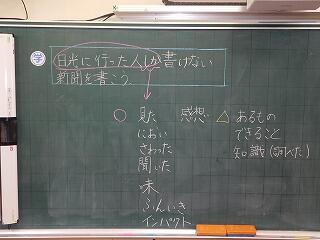 学
日光に行った人しか書けない
新聞を書こう。
○ 見た
におい
さわった
聞いた
味
ふんいき
インパクト
感想
△ あるもの
できること
知識(調べた)